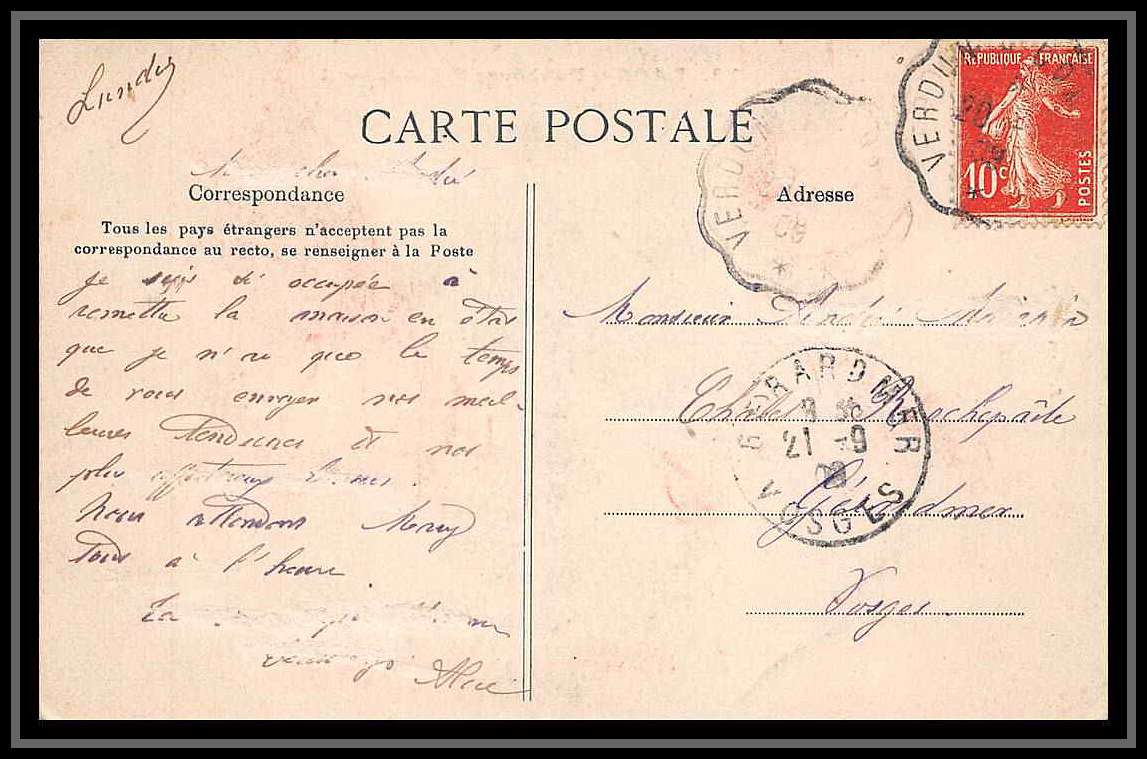 Lundi
CARTE POSTALE
Correspondance
Tous les pays étrangers n'acceptent pas la
correspondance au recto, se renseigner à la Poste
Je suis si occupée à
remettre la maison en état
que je n'ai que le temps
de vous envoyer nos meil-
leures tendresses et nos
plus affectueux
Nous attendons
tous à l'heure.
La
Alice
Adresse
VERDUN
08
RÉPUBLIQUE FRANÇAISE
10c
POSTES
VERDUN
20
Monsieur André
Chalet Rochepaîte
Gérardmer
Vosges
GERARDMER
21-9
VOSGES